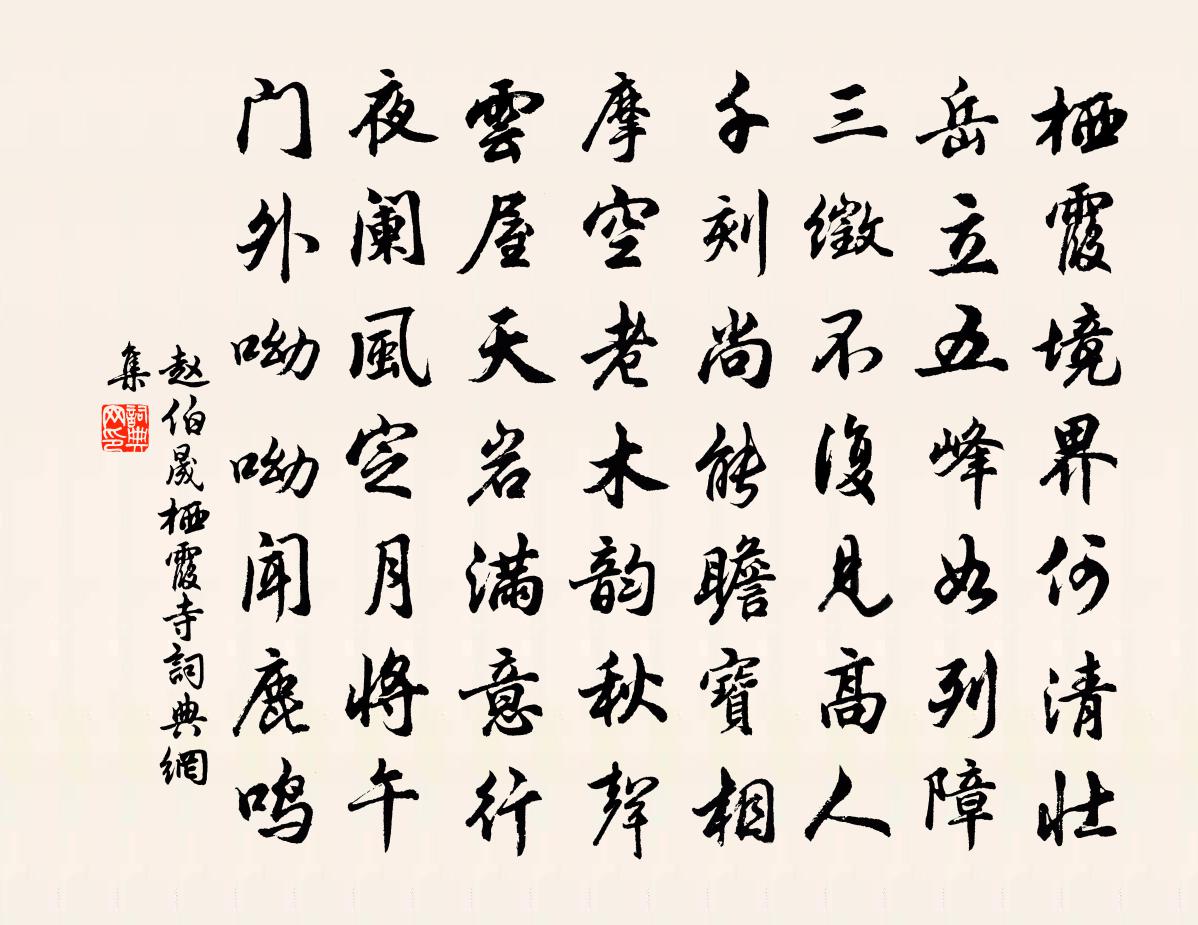 栖霞境界何清壮
岳立五峰如列障
三徵不復见高人
千刻尚能瞻寶相
摩空老木韵秋聲
雲屋天岩满意行
夜阑風定月將午
门外呦呦闻鹿鸣
赵伯晟栖霞寺詞典網
集
詞典
网印